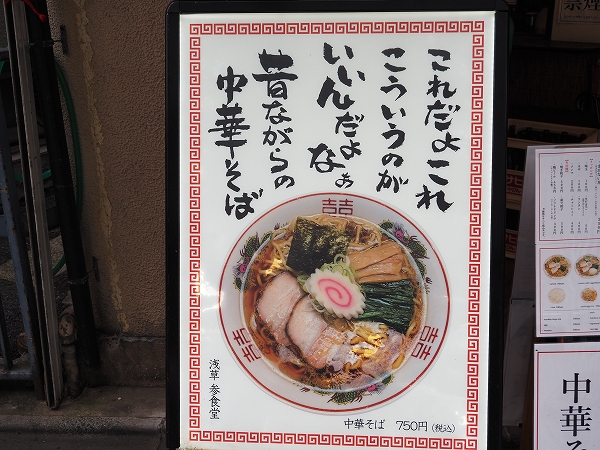 これだよこれ
こういうのが
いいんだよなぁ
昔ながらの
中華そば
浅草 参食堂
中華そば 750円(税込)
中華そ